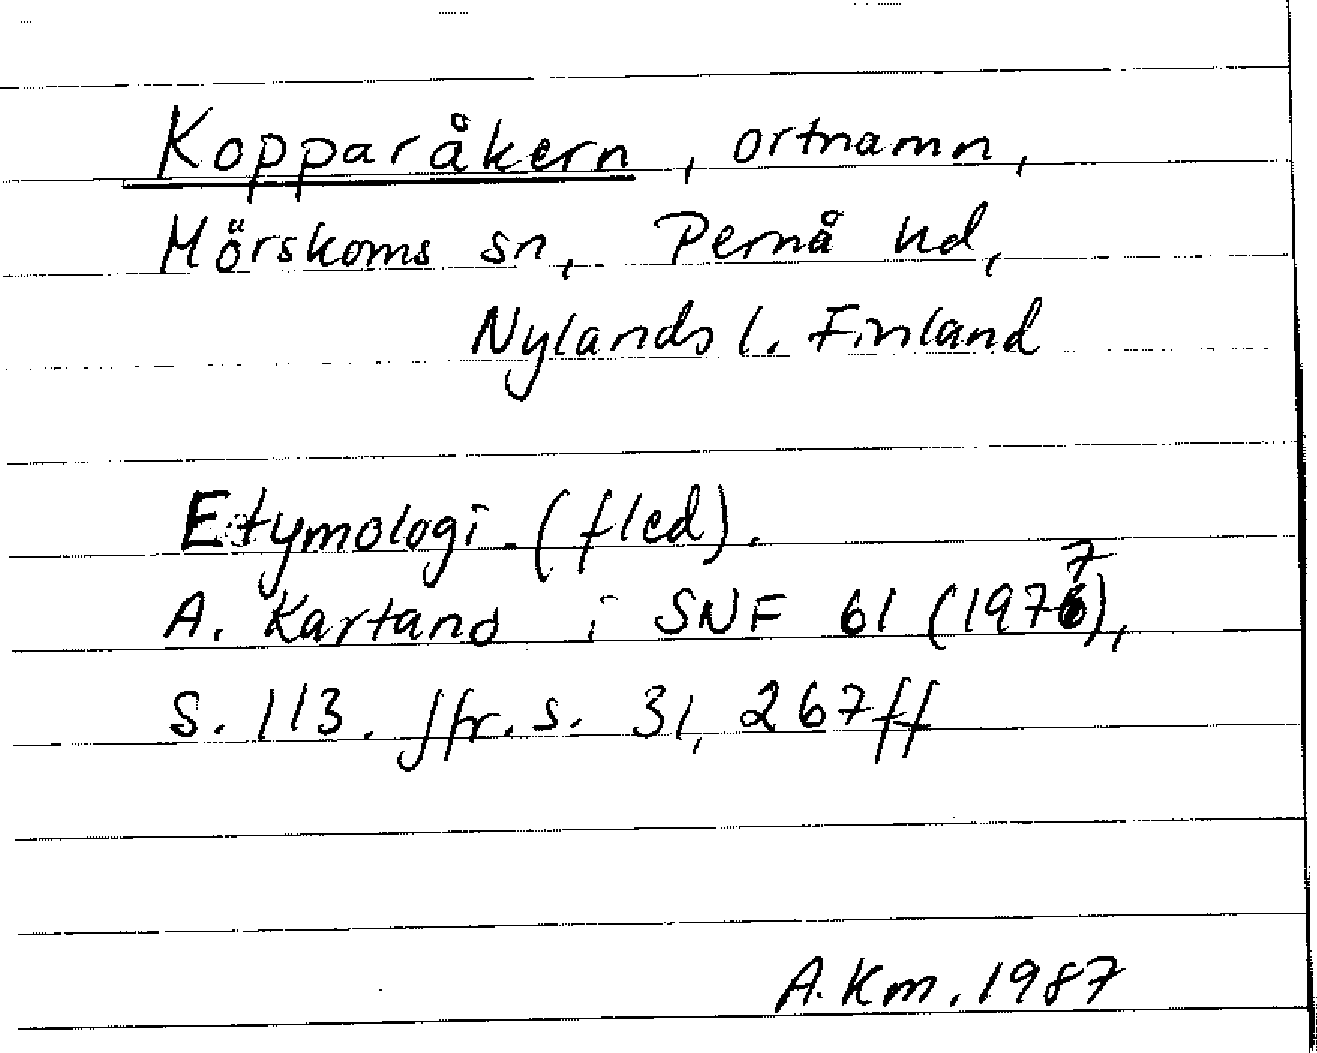 Kopparåkern, ortnamn,
Mörskoms sn, Pernå hd,
Nylands l. Finland
Etymologi. (fled).
A. Karland i SNF 61 (1977),
S. 113. Jfr. s. 31, 267ff
A. Km. 1987